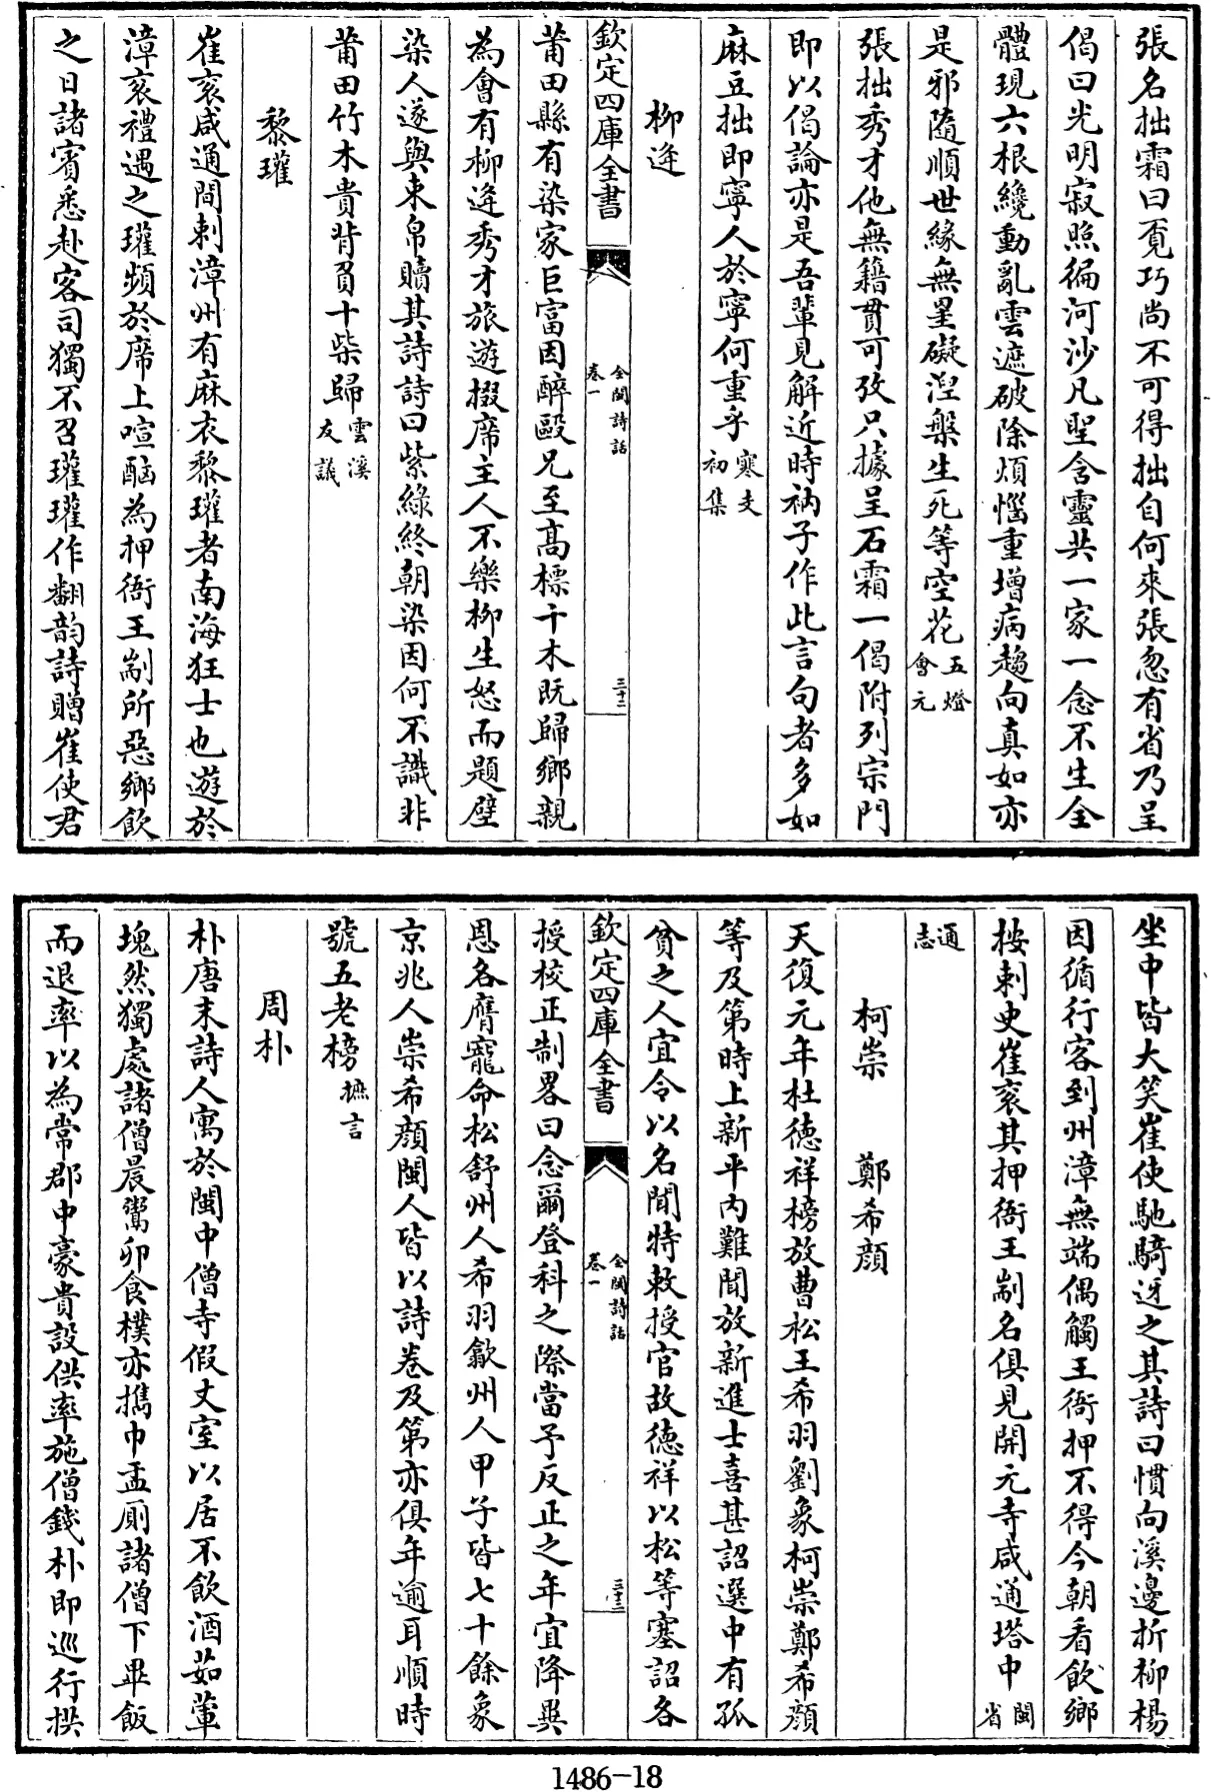 張名拙霜曰覔巧尚不可得拙自何來張忽有省乃呈
偈曰光明寂照徧河沙凡聖含靈共一家一念不生全
體現六根纔動亂雲遮破除煩惱重增病趨向真如亦
是邪隨順世緣無罣礙湼槃生死等空花五燈會元
張拙秀才他無籍貫可攷只據呈石霜一偈附列宗門
即以偈論亦是吾輩見解近時衲子作此言句者多如
麻豆拙即寧人於寧何重乎寒支初集
柳逄
欽定四庫全書
全閩詩話
卷一
三十二
莆田縣有染家巨富因醉毆兄至高標千木既歸鄉親
為會有柳逄秀才旅遊掇席主人不樂柳生怒而題壁
染人遂與束帛贖其詩詩曰紫綠終朝染因何不識非
莆田竹木貴背負十柴歸雲溪友議
黎瓘
崔衮咸通間剌漳州有麻衣黎瓘者南海狂士也遊於
漳衮禮遇之瓘頻於席上喧酗為押衙王剬所惡鄉飲
之日諸賓悉赴客司獨不召瓘瓘作翻韵詩贈崔使君
坐中皆大笑崔使馳騎迓之其詩曰慣向溪邊折柳楊
因循行客到州漳無端偶觸王衙押不得今朝看飲鄉
按剌史崔衮其押衙王剬名俱見開元寺咸通塔中閩省
通志
柯崇　鄭希顔
天復元年杜德祥榜放曹松王希羽劉象柯崇鄭希顔
等及第時上新平內難聞放新進士喜甚詔選中有孤
貧之人宜令以名聞特敕授官故德祥以松等塞詔各
欽定四庫全書
全閩詩話
卷一
三十三
授校正制畧曰念爾登科之際當予反正之年宜降異
恩各膺寵命松舒州人希羽歙州人甲子皆七十餘象
京兆人崇希顔閩人皆以詩卷及第亦俱年逾耳順時
號五老榜摭言
周朴
朴唐末詩人寓於閩中僧寺假丈室以居不飲酒茹葷
塊然獨處諸僧晨粥卯食樸亦擕巾盂厠諸僧下畢飯
而退率以為常郡中豪貴設供率施僧錢朴即巡行拱
1486-18